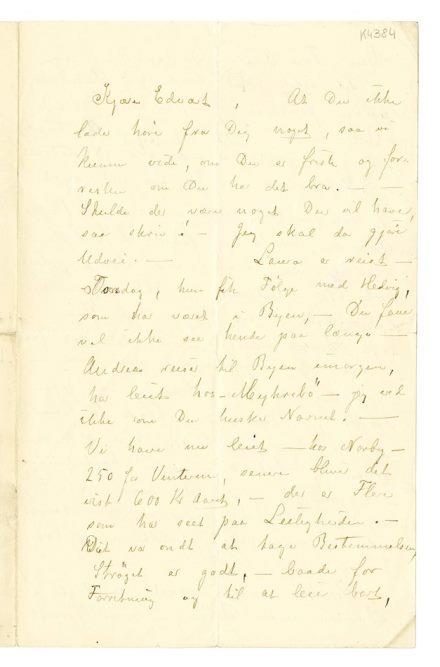 K4384
Kjære Edvart, At Du ikke
lader høre fra Dig noget, saa vi
kunne vide, om Du er frisk og for-
resten om Du har det bra. — —
Skulde der være noget Du vil have,
saa skriv! — Jeg skal da gjøre
Udvei. — Laura er reist —
Torsdag, hun fik Følge med Hedvig,
som har været i Byen, — Du faar
vel ikke see hende paa længe —
Andreas reiser til Byen imorgen,
har leiet hos — jeg ved
ikke om Du husker Navnet. —
Vi have nu leiet — hos Norby —
250 for Vinteren, senere bliver det
vist 600 Kr Aaret, — der er Flere
som har seet paa Leiligheden. —
Det var ondt at tage Bestemmelsen,
Strøget er godt, — baade for
Forretning og til at leie bort,